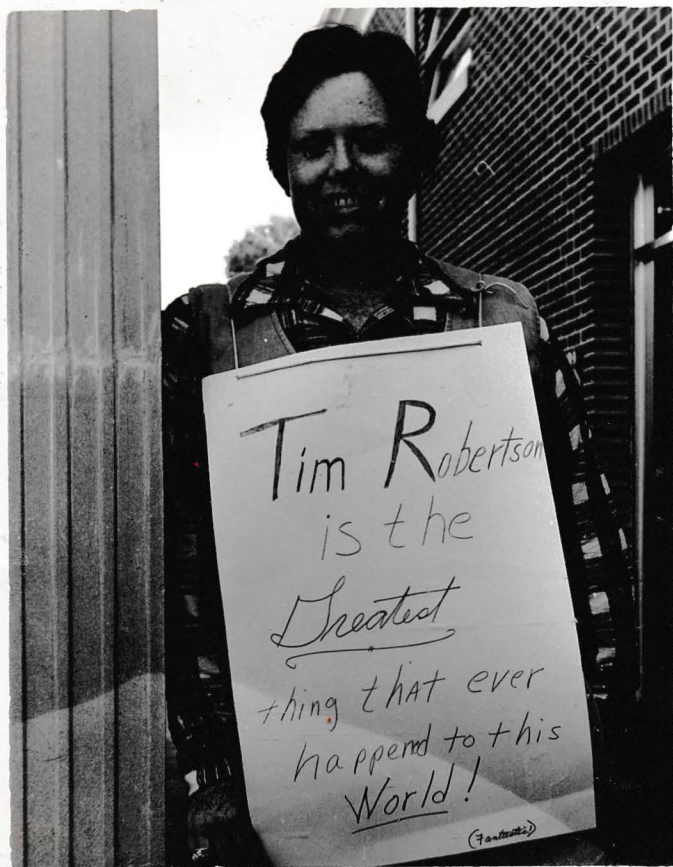 Tim Robertson
is the
Greatest
thing thAt ever
happend to this
World!
(Fantastic!)